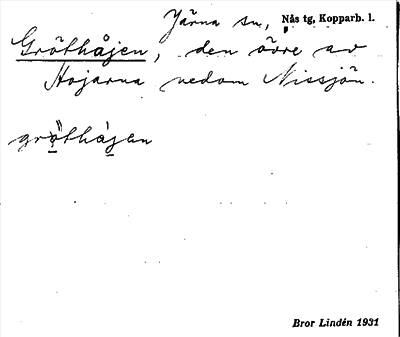 Järna sn, Nås tg, Kopparb. l.
Gröthåjen, den övre av
Hojarna nedom Nissjön.
gröthàjen
Bror Lindén 1931